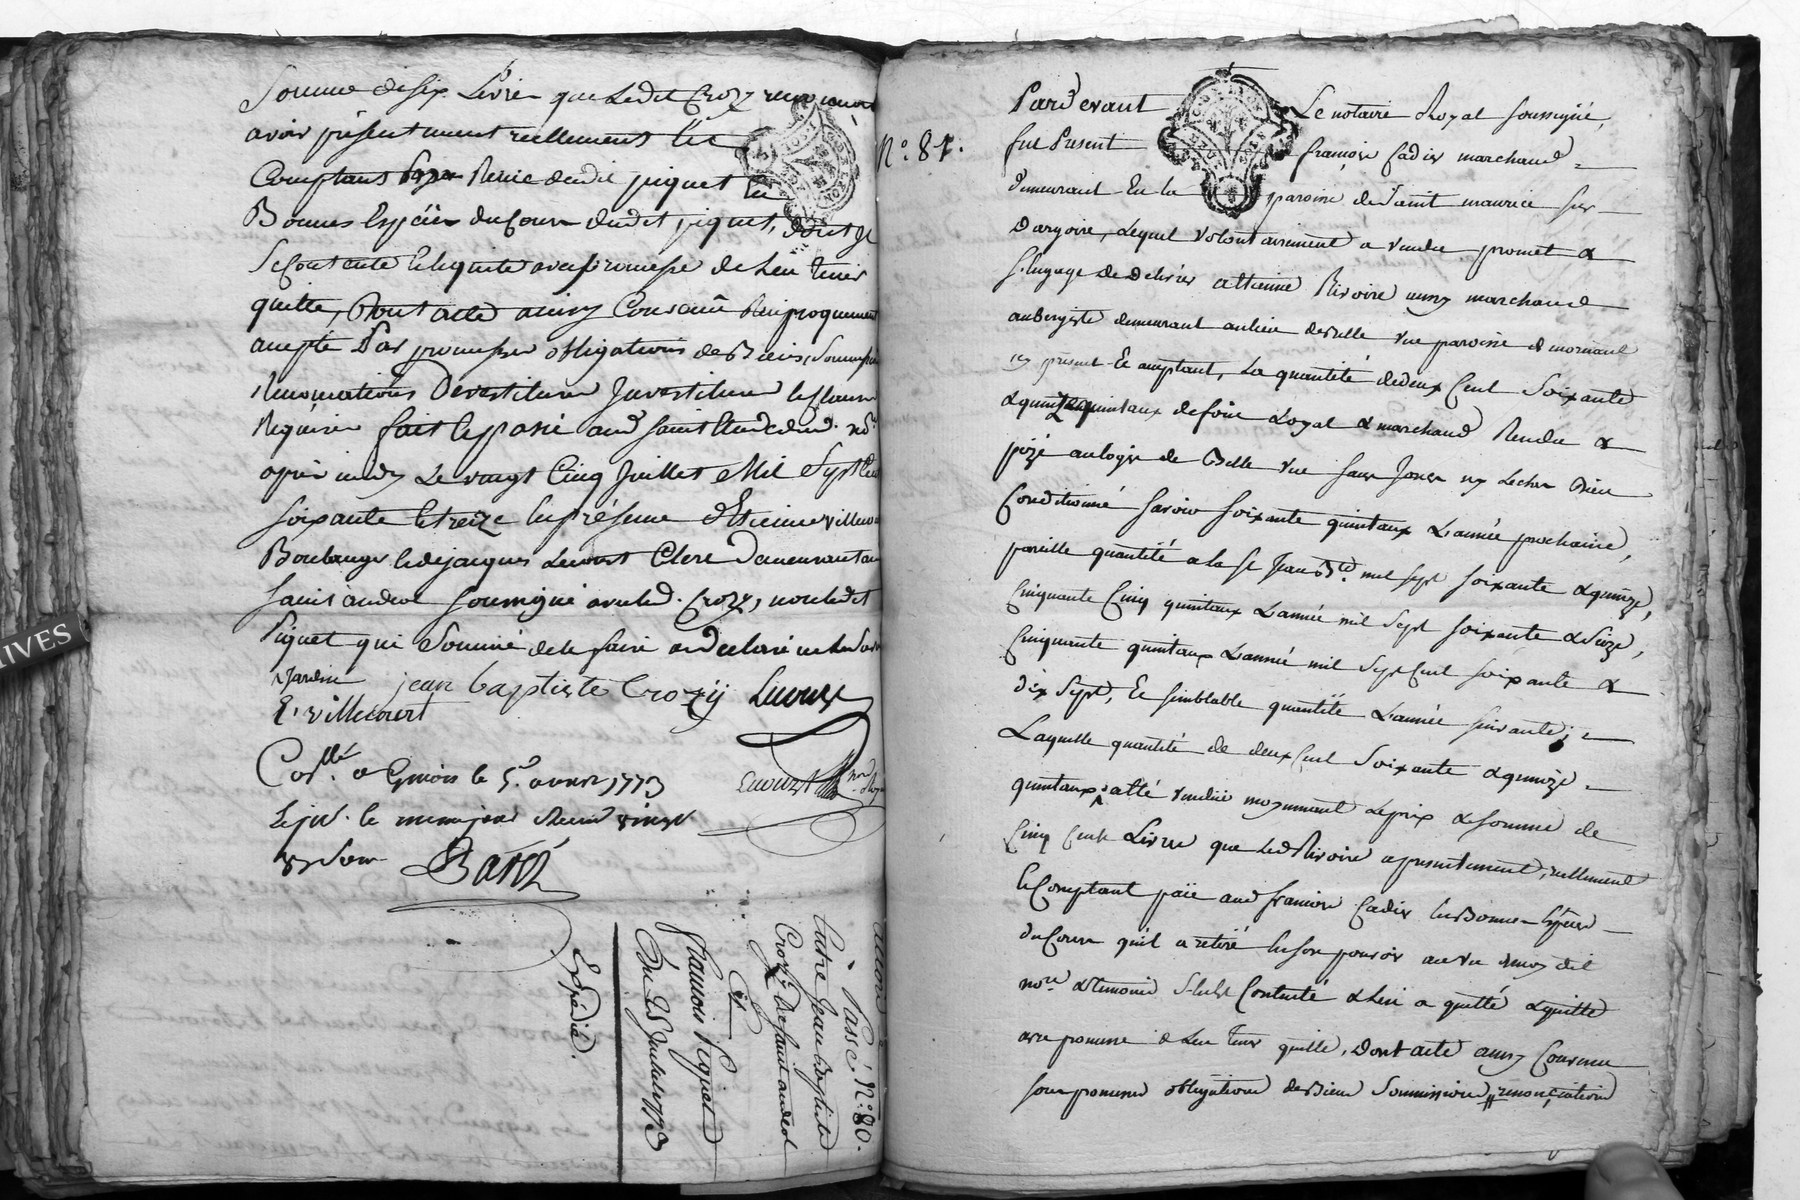 Somme de six Livres que Ledit Crozy
avoir présentement reellement et
Comptant Reçue dudit piquet En
Bonnes Espéces du Cours dudit piquet, dont Il
Se Contente et le quitte avec promesse de L'en tenir
quitte, Dont acte ainsy Convenû Réciproquement
accepté Par promesses obligations de Biens, Soumissions
Renonciations Devestiture Investiture et Clauses
Requises fait et passé aud saint andeol
après midy Le vingt Cinq Juillet Mil Sept Cent
soixante et treize En présence d'Etienne villecourt
Boulanger et de jacques Clerc Demeurant au
saint andeol soussigné avec led. Crozy, non ledit
Piquet qui Sommé de le faire a declaré ne le Savoir
jean baptiste Crozÿ
E. villecourt
Con.llé a Givors le 5.e 1773
le meme jour vingt
Passé N.º 80.
Entre Jean Baptiste
Crozy de saint andeol
Et
francois Piquet
Du 25 Juillet 1773
Expédié.
N.º 81.
Pardevant Le notaire Royal soussigné,
fut Present françois Cadier marchand
demeurant En la paroisse de saint maurice sur
Dargoire, Lequel volontairement a vendu promet &
s'engage de delivrer a Etienne Rivoire aussy marchand
aubergiste demeurant au lieu de belle vue paroisse de mornant
icy présent Et acceptant, La quantité de deux Cent Soixante
& quinze quintaux de foin Loyal & marchand Rendu &
pezé au logis de Belle vue sans Joncs ny Leches Bien
Conditionné savoir soixante quintaux L'année prochaine,
pareille quantité a la St Jean Bte. mil sept soixante & quinze,
Cinquante Cinq quintaux L'année mil Sept soixante & Seize,
Cinquante quintaux L'année mil Sept Cent soixante &
dix Sept, Et semblable quantité L'année suivante;
Laquelle quantité de deux Cent Soixante & quinze
quintaux a été vendue moyennant Le prix & somme de
Cinq Cents Livres que Led Rivoire a presentement, reellement
Et Comptant paié aud françois Cadier En Bonnes Espéces
du Cours qu'il a retiré En son pouvoir au vu de nousdit
nore & temoins S'en est Contenté & L'en a quitté & quitte
avec promesse de L'en tenir quitte, Dont acte ainsy Convenu
sous promesses obligations de Biens Soumissions, renonciations